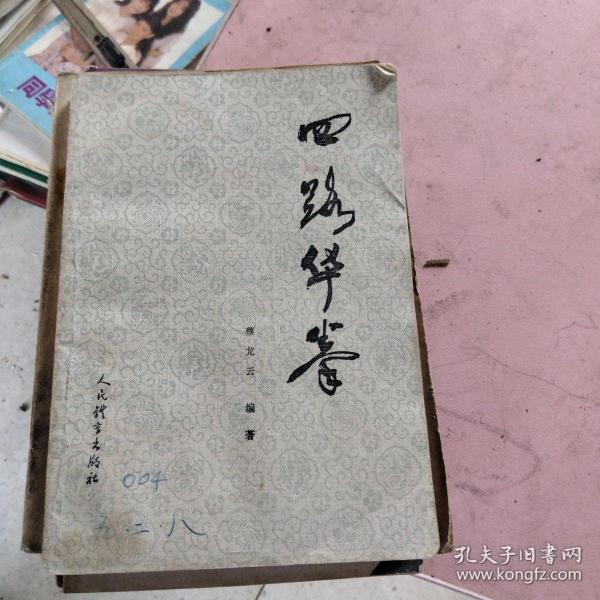 四路华拳
蔡龙云 编著
人民体育出版社
004
孔夫子旧书网
www.kongfz.com